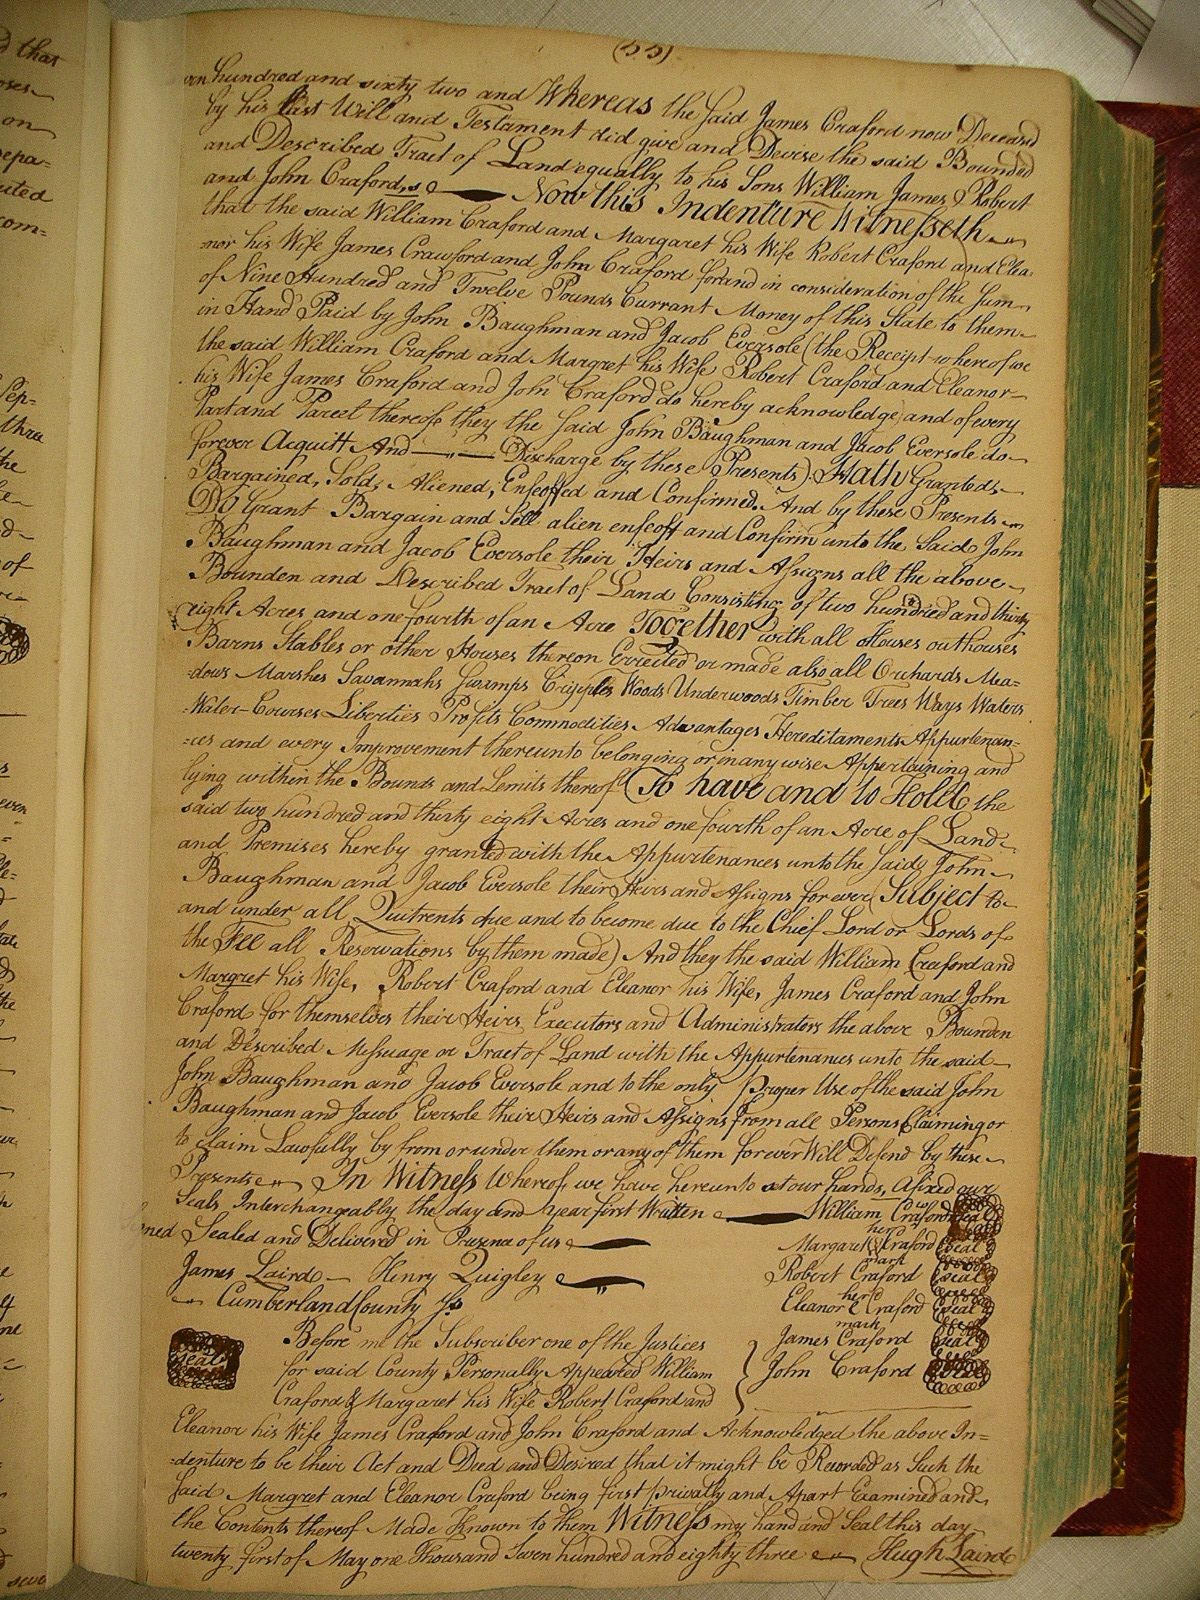 (55)
hundred and sixty two and Whereas the said James Craford now Deceasd
by his last Will and Testament did give and Devise the said Bounded
and Described Tract of Land equally to his Sons William James Robert
and John Craford, Now this Indenture Witnesseth
that the said William Craford and Margaret his Wife Robert Craford and Elea
nor his Wife James Crawford and John Craford for and in consideration of the Sum
of Nine Hundred and Twelve Pounds Currant Money of this State to them
in Hand Paid by John Baughman and Jacob Eversole (the Receipt whereof we
the said William Craford and Margret his Wife Robert Craford and Eleanor
his Wife James Craford and John Craford do hereby acknowledge and of every
Part and Parcel thereof they the said John Baughman and Jacob Eversole do
forever Acquitt And Discharge by these Presents) Hath Granted
Bargained, Sold, Aliened, Enfeoffed and Confirmed. And by these Presents
Do Grant Bargain and Sell alien enfeoff and Confirm unto the Said John
Baughman and Jacob Eversole their Heirs and Assigns all the above
Bounden and Described Tract of Land Consisting of two hundred and thirty
eight Acres and one fourth of an Acre Together with all Houses outhouses
Barns Stables or other Houses thereon Errected or made also all Orchards Mea=
dows Marshes Savannahs Swamps Cripples Woods Underwoods Timber Trees Ways Waters
Water-Courses Liberties Profits Commodities Advantages Hereditaments Appurtenan=
=ces and every Improvement thereunto belonging or in any wise Appertaining and
lying within the Bounds and Lemits thereof (To have and to Hold the
said two hundred and thirty eight Acres and one fourth of an Acre of Land
and Premises hereby granted with the Appurtenances unto the said John
Baughman and Jacob Eversole their Heirs and Assigns for ever (Subject to
and under all Quitrents due and to become due to the Chief Lord or Lords of
the Fee all Reservations by them made) And they the said William Craford and
Margret his Wife, Robert Craford and Eleanor his Wife, James Craford and John
Craford for themselves their Heirs Executors and Administrators the above Bounden
and Described Messuage or Tract of Land with the Appurtenances unto the said
John Baughman and Jacob Eversole and to the only proper Use of the said John
Baughman and Jacob Eversole their Heirs and Assigns from all Persons Claiming or
to claim Lawfully by from or under them or any of them forever Will Defend by these
Presents In Witness Whereof we have hereunto set our hands, Afixed our
Seals Interchangeably the day and year first Written William Craford seal
ned Sealed and Delivered in Presence of us
her
Margaret Craford seal
mark
James Laird Henry Quigley Robert Craford seal
Cumberland County Ss
her
Eleanor E Craford seal
mark
seal Before me the Subscriber one of the Justices James Craford seal
for said County Personally Appeared William John Craford seal
Craford & Margaret his Wife Robert Craford and
Eleanor his Wife James Craford and John Craford and Acknowledged the above In=
=denture to be their Act and Deed and Desired that it might be Recorded as Such the
said Margret and Eleanor Craford being first privatly and Apart Examined and
the Contents thereof Made Known to them Witness my hand and Seal this day
twenty first of May one Thousand Seven hundred and eighty three Hugh Laird